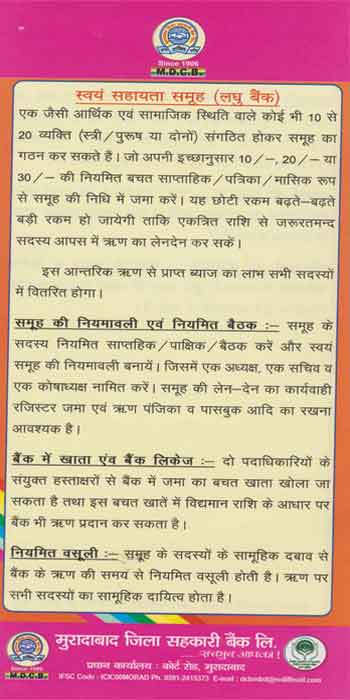 Since 1906
M.D.C.B.
स्वयं सहायता समूह (लघु बैंक)
एक जैसी आर्थिक एवं सामाजिक स्थिति वाले कोई भी 10 से
20 व्यक्ति (स्त्री/पुरूष या दोनों) संगठित होकर समूह का
गठन कर सकते हैं। जो अपनी इच्छानुसार 10/–, 20/– या
30/– की नियमित बचत साप्ताहिक/पत्रिका/मासिक रूप
से समूह की निधि में जमा करें। यह छोटी रकम बढ़ते–बढ़ते
बड़ी रकम हो जायेगी ताकि एकत्रित राशि से जरूरतमन्द
सदस्य आपस में ऋण का लेनदेन कर सकें।
इस आन्तरिक ऋण से प्राप्त ब्याज का लाभ सभी सदस्यों
में वितरित होगा।
समूह की नियमावली एवं नियमित बैठक :– समूह के
सदस्य नियमित साप्ताहिक/पाक्षिक/बैठक करें और स्वयं
समूह की नियमावली बनायें। जिसमें एक अध्यक्ष, एक सचिव व
एक कोषाध्यक्ष नामित करें। समूह की लेन–देन का कार्यवाही
रजिस्टर जमा एवं ऋण पंजिका व पासबुक आदि का रखना
आवश्यक है।
बैंक में खाता एंव बैंक लिकेज :– दो पदाधिकारियों के
संयुक्त हस्ताक्षरों से बैंक में जमा का बचत खाता खोला जा
सकता है तथा इस बचत खातें में विद्यमान राशि के आधार पर
बैंक भी ऋण प्रदान कर सकता है।
नियमित वसूली :– समूह के सदस्यों के सामूहिक दबाव से
बैंक के ऋण की समय से नियमित वसूली होती है। ऋण पर
सभी सदस्यों का सामूहिक दायित्व होता है।
Since 1906
M.D.C.B.
मुरादाबाद जिला सहकारी बैंक लि.
आपका!
प्रधान कार्यालय : कोर्ट रोड, मुरादाबाद
IFSC Code - ICIC00MORAD Ph. 0591-2415373 E-mail :